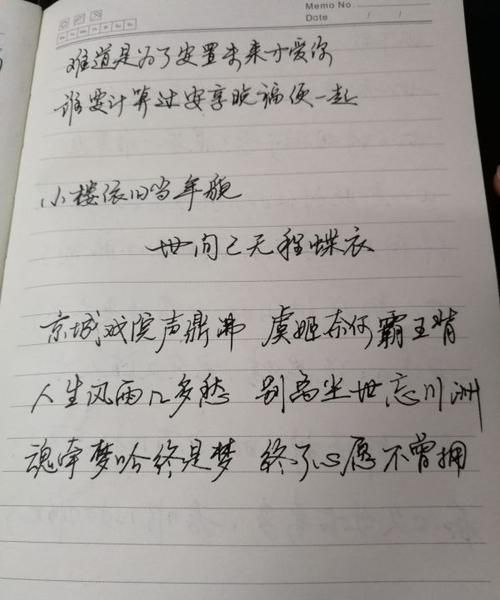 Memo No.
Date / /
难道是为了安置未来才爱你
谁要计算过安享晚福便一起
小楼依旧当年貌
世间已无程蝶衣
京城戏院声鼎沸 虞姬奈何霸王背
人生风雨几多愁 别离尘世忘川洲
魂牵梦吟终是梦 终了心愿不曾拥